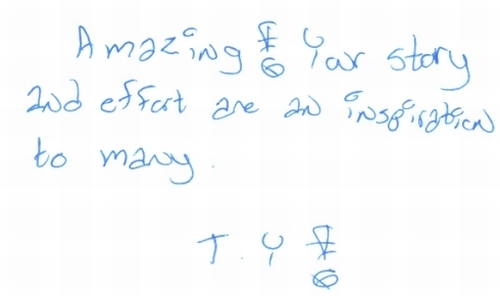 Amazing! Your story
and effort are an inspiration
to many.
T.Y!